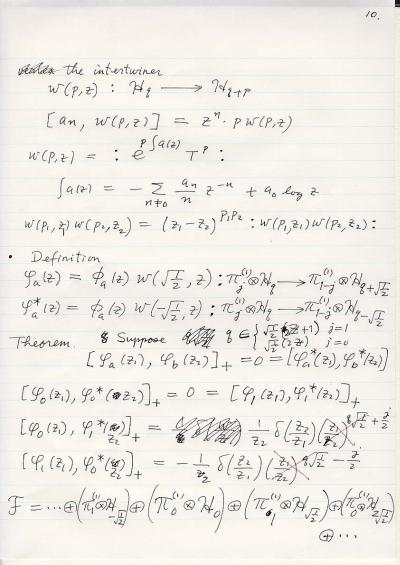 10.
the intertwiner
W(p,z) : H_q ⟶ H_{q+p}
[a_n, W(p,z)] = z^n · p W(p,z)
W(p,z) = : e^{p∫a(z)} T^p :
∫a(z) = − Σ_{n≠0} a_n/n z^{-n} + a_0 log z
W(p_1,z_1) W(p_2,z_2) = (z_1 − z_2)^{p_1p_2} : W(p_1,z_1) W(p_2,z_2) :
• Definition
φ_a(z) = ϕ_a(z) W(√(1/2), z) : π_j^{(1)} ⊗ H_q ⟶ π_{1-j}^{(1)} ⊗ H_{q+√(1/2)}
φ_a^*(z) = ϕ_a(z) W(−√(1/2), z) : π_j^{(1)} ⊗ H_q ⟶ π_{1-j}^{(1)} ⊗ H_{q−√(1/2)}
Theorem. Suppose q ∈ { √(1/2)(2Z+1) j=1
√(1/2)(2Z) j=0
[φ_a(z_1), φ_b(z_2)]_+ = 0 = [φ_a^*(z_1), φ_b^*(z_2)]
[φ_0(z_1), φ_0^*(z_2)]_+ = 0 = [φ_1(z_1), φ_1^*(z_2)]_+
[φ_0(z_1), φ_1^*(z_2)]_+ = 1/z_2 δ(z_2/z_1)
[φ_1(z_1), φ_0^*(z_2)]_+ = − 1/z_2 δ(z_2/z_1)
F = ··· ⊕ (π_1^{(1)} ⊗ H_{−√(1/2)}) ⊕ (π_0^{(1)} ⊗ H_0) ⊕ (π_1^{(1)} ⊗ H_{√(1/2)}) ⊕ (π_0^{(1)} ⊗ H_{2√(1/2)})
⊕ ···